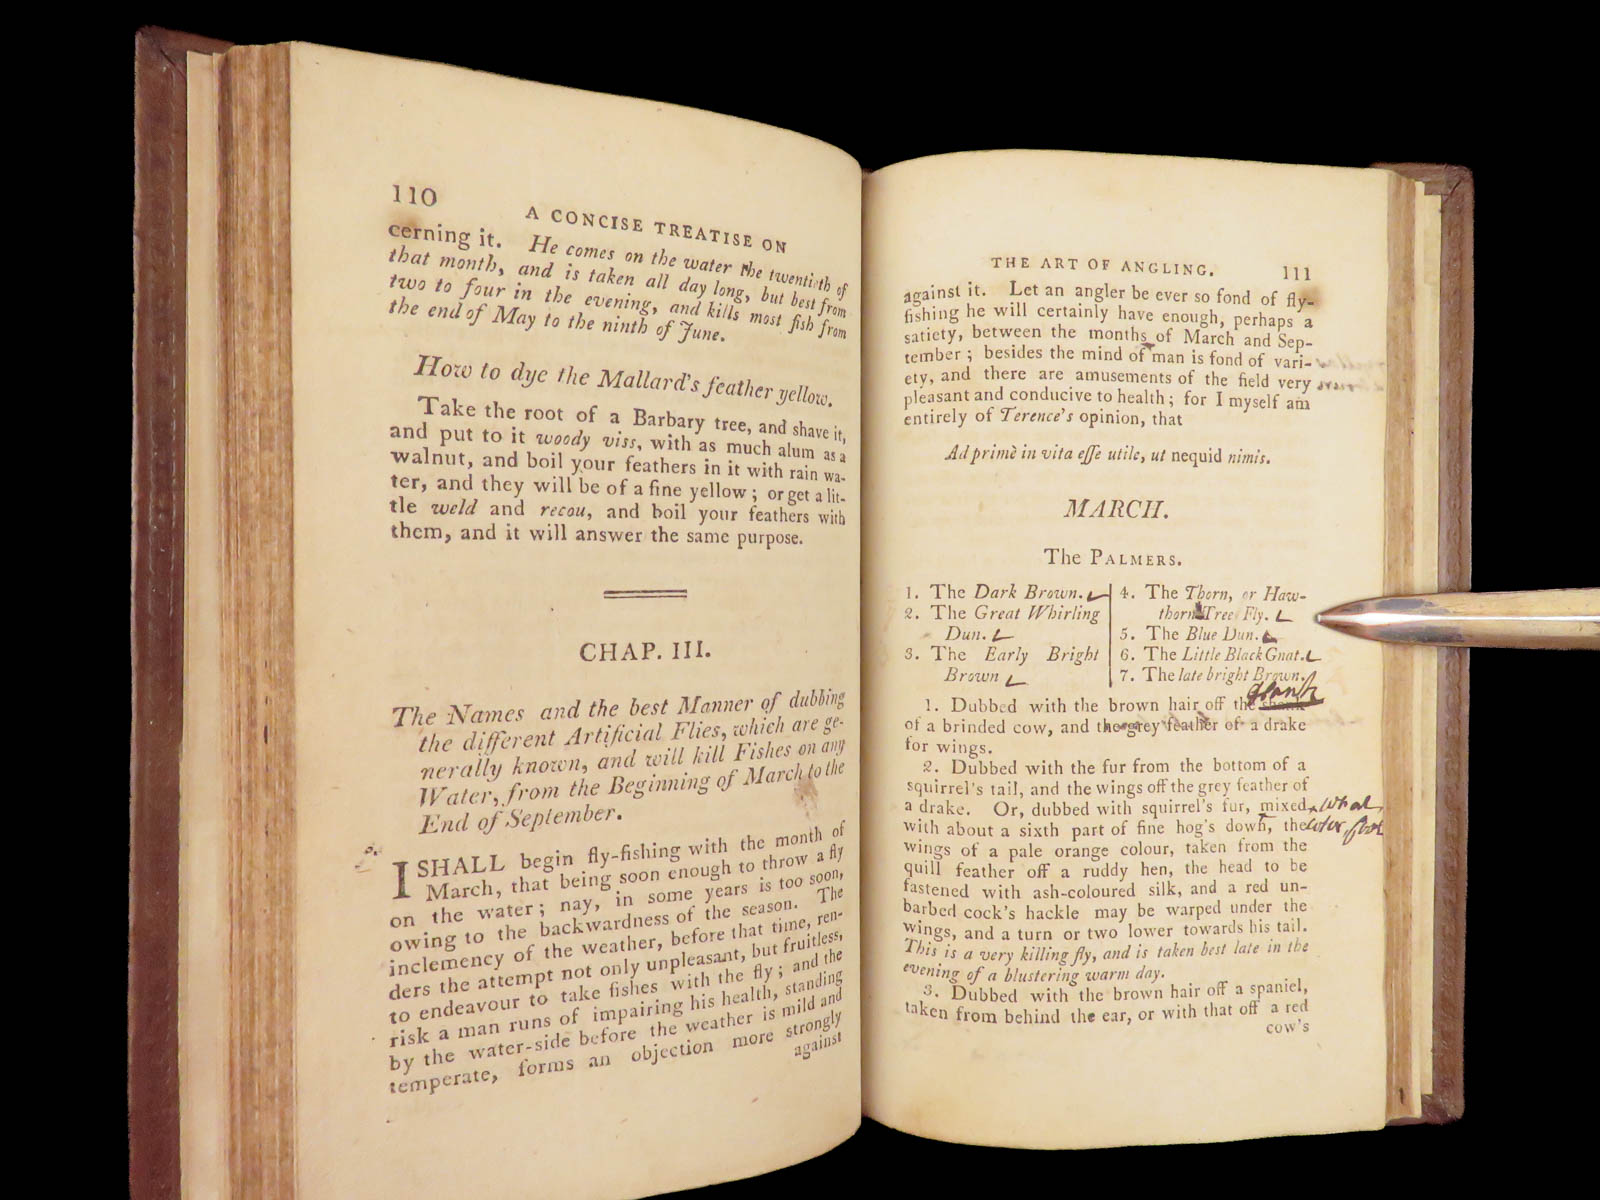 110
A CONCISE TREATISE ON
cerning it. He comes on the water the twentieth of
that month, and is taken all day long, but best from
two to four in the evening, and kills most fish from
the end of May to the ninth of June.
How to dye the Mallard's feather yellow.
Take the root of a Barbary tree, and shave it,
and put to it woody viss, with as much alum as a
walnut, and boil your feathers in it with rain wa-
ter, and they will be of a fine yellow; or get a lit-
tle weld and recou, and boil your feathers with
them, and it will answer the same purpose.
CHAP. III.
The Names and the best Manner of dubbing
the different Artificial Flies, which are ge-
nerally known, and will kill Fishes on any
Water, from the Beginning of March to the
End of September.
I SHALL begin fly-fishing with the month of
March, that being soon enough to throw a fly
on the water; nay, in some years is too soon,
owing to the backwardness of the season. The
inclemency of the weather, before that time, ren-
ders the attempt not only unpleasant, but fruitless,
to endeavour to take fishes with the fly; and the
risk a man runs of impairing his health, standing
by the water-side before the weather is mild and
temperate, forms an objection more strongly
against
THE ART OF ANGLING. 111
against it. Let an angler be ever so fond of fly-
fishing he will certainly have enough, perhaps a
satiety, between the months of March and Sep-
tember; besides the mind of man is fond of vari-
ety, and there are amusements of the field very
pleasant and conducive to health; for I myself am
entirely of Terence's opinion, that
Ad primè in vita esse utile, ut nequid nimis.
MARCH.
The PALMERS.
1. The Dark Brown.
2. The Great Whirling
Dun.
3. The Early Bright
Brown
4. The Thorn, or Haw-
thorn Tree Fly.
5. The Blue Dun.
6. The Little Black Gnat.
7. The late bright Brown.
1. Dubbed with the brown hair off the
of a brinded cow, and the grey feather of a drake
for wings.
2. Dubbed with the fur from the bottom of a
squirrel's tail, and the wings off the grey feather of
a drake. Or, dubbed with squirrel's fur, mixed what
with about a sixth part of fine hog's down, the color,
wings of a pale orange colour, taken from the
quill feather off a ruddy hen, the head to be
fastened with ash-coloured silk, and a red un-
barbed cock's hackle may be warped under the
wings, and a turn or two lower towards his tail.
This is a very killing fly, and is taken best late in the
evening of a blustering warm day.
3. Dubbed with the brown hair off a spaniel,
taken from behind the ear, or with that off a red
cow's